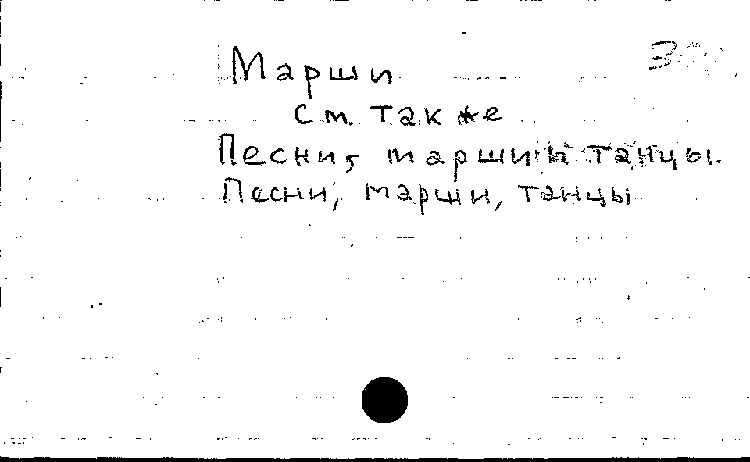 Марши
см. также
Песни, марши и танцы.
Песни, марши, танцы